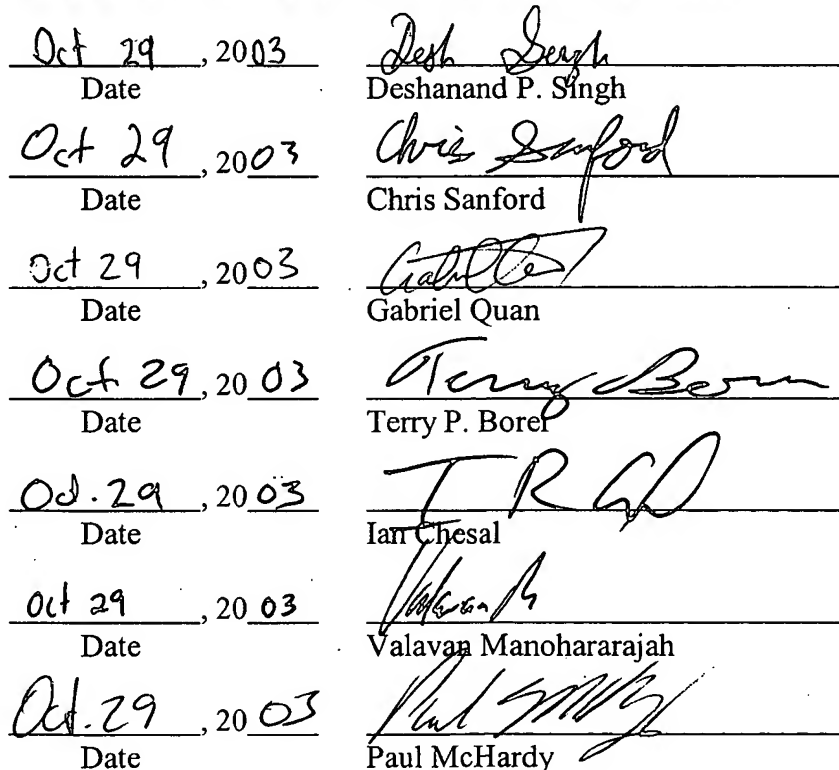 Oct 29, 2003 Desh Singh
Date Deshanand P. Singh
Oct 29, 2003 Chris Sanford
Date Chris Sanford
Oct 29, 2003
Date Gabriel Quan
Oct 29, 2003 Terry Borer
Date Terry P. Borer
Oct. 29, 2003
Date Ian Chesal
Oct 29, 2003 Valavan M
Date Valavan Manohararajah
Oct. 29, 2003 Paul McHardy
Date Paul McHardy